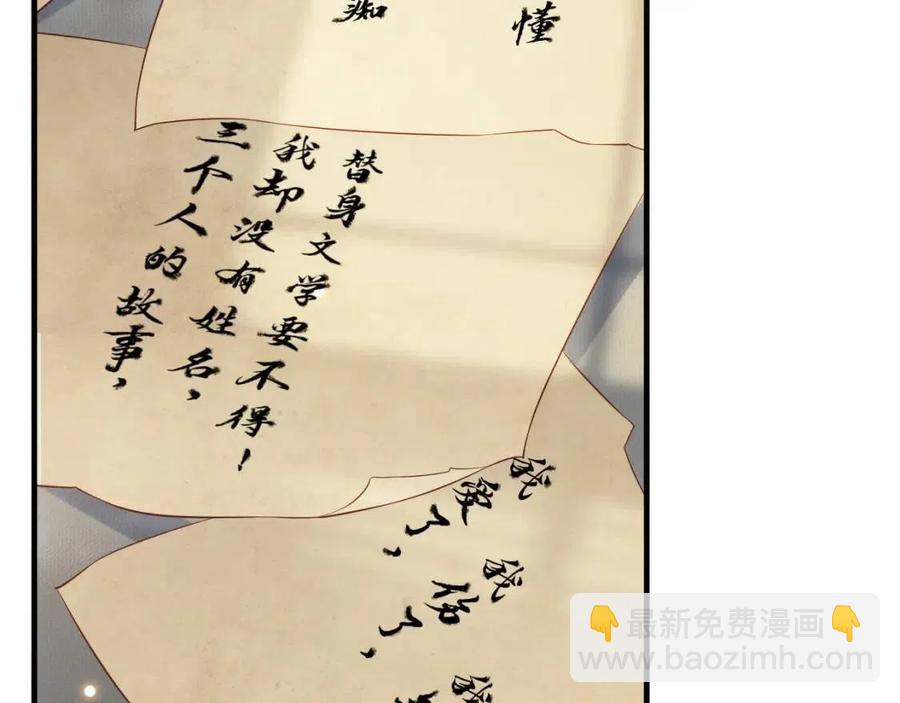 痴
懂
三个人的故事，
我却没有姓名，
替身文学要不得！
我爱了，
我伤了，
我
最新免费漫画
www.baozimh.com